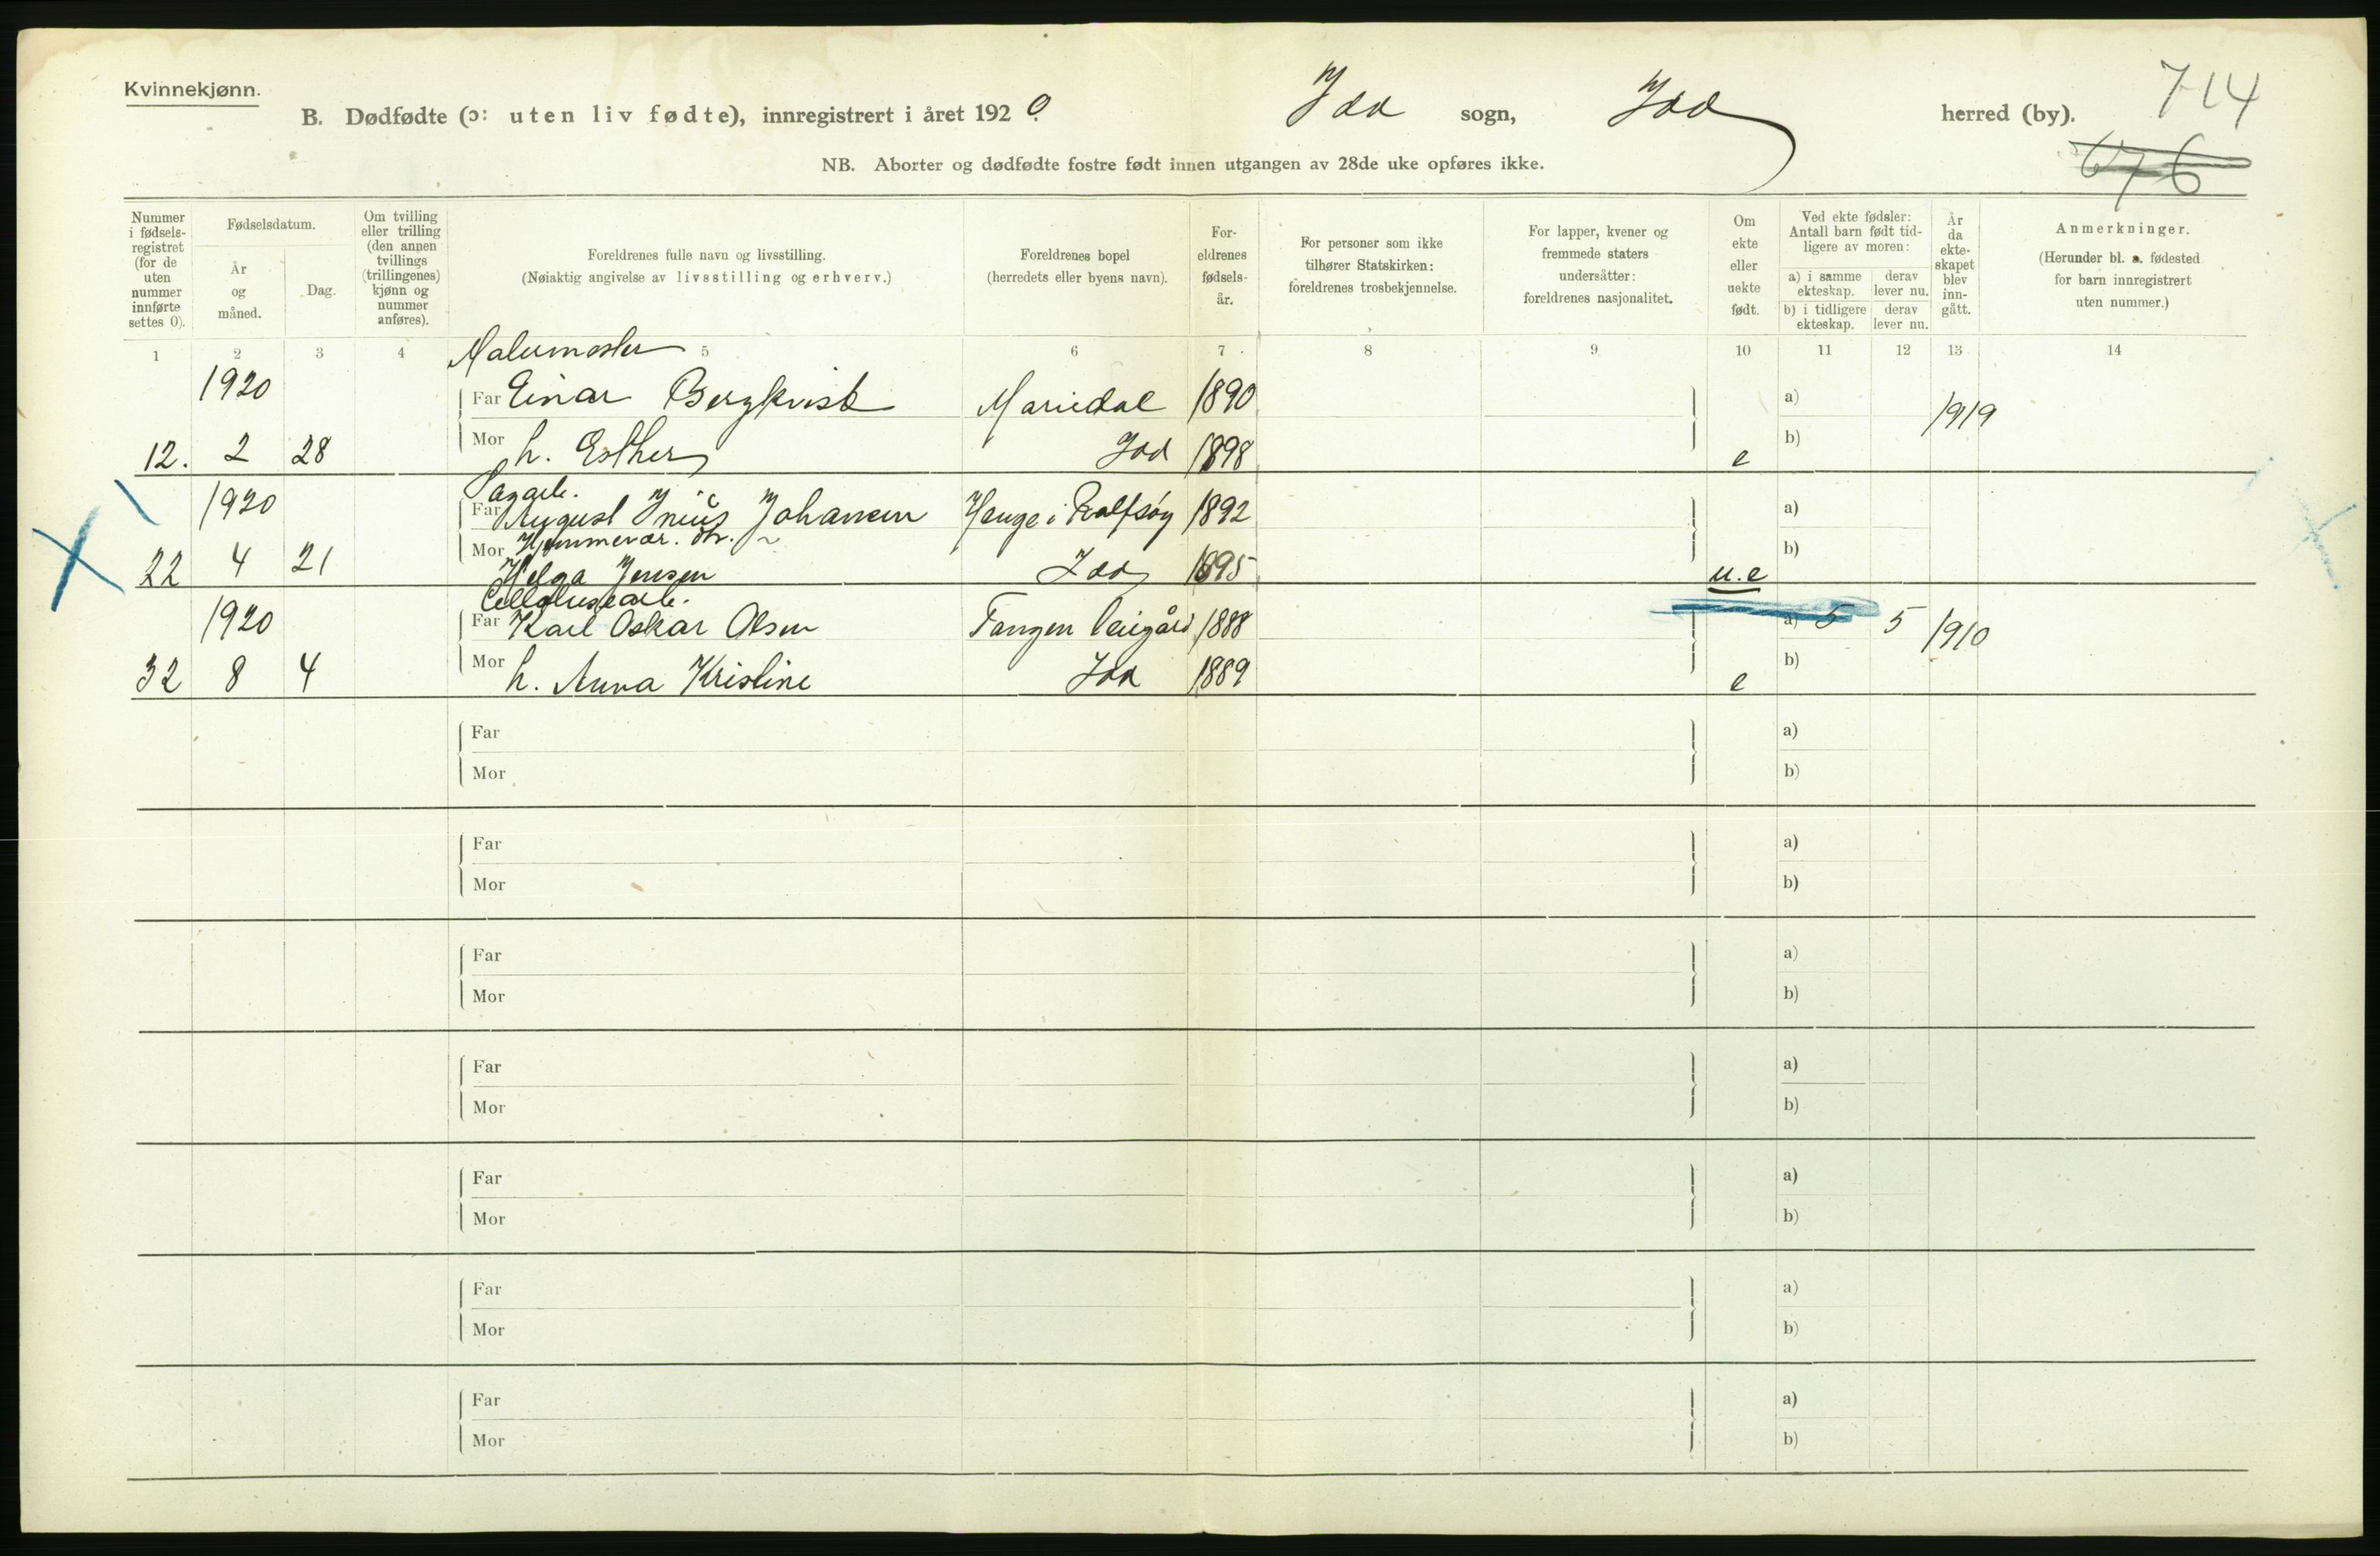 Kvinnekjønn.
B. Dødfødte (ɔ: uten liv fødte), innregistrert i året 1920. Idd sogn, Idd herred (by).
714
676
NB. Aborter og dødfødte fostre født innen utgangen av 28de uke opføres ikke.
Nummer i fødsels-registret (for de uten nummer innførte settes 0).
Fødselsdatum.
År og måned.
Dag.
Om tvilling eller trilling (den annen tvillings (trillingenes) kjønn og nummer anføres).
Foreldrenes fulle navn og livsstilling.
(Nøiaktig angivelse av livsstilling og erhverv.)
Foreldrenes bopel
(herredets eller byens navn).
For-eldrenes fødsels-år.
For personer som ikke tilhører Statskirken: foreldrenes trosbekjennelse.
For lapper, kvener og fremmede staters undersåtter: foreldrenes nasjonalitet.
Om ekte eller uekte født.
Ved ekte fødsler: Antall barn født tid-ligere av moren:
a) i samme ekteskap. derav lever nu.
b) i tidligere ekteskap. derav lever nu.
År da ekte-skapet blev inn-gått.
Anmerkninger.
(Herunder bl. a. fødested for barn innregistrert uten nummer.)
1 2 3 4 5 6 7 8 9 10 11 12 13 14
Malermester
1920 Far Einar Bergkvist Mariedal 1890 a) 1919
12. 2 28 Mor h. Esther Idd 1898 e b)
1920 Far August Johansen Hauge i Rolfsøy 1892 a)
22 4 21 Mor Helga Jensen Idd 1895 u.e b)
Cellulosearb.
1920 Far Karl Oskar Olsen Tangen leiegård 1888 a) 5 5 1910
32 8 4 Mor h. Anna Kristine Idd 1889 e b)
Far a)
Mor b)
Far a)
Mor b)
Far a)
Mor b)
Far a)
Mor b)
Far a)
Mor b)
Far a)
Mor b)
Far a)
Mor b)